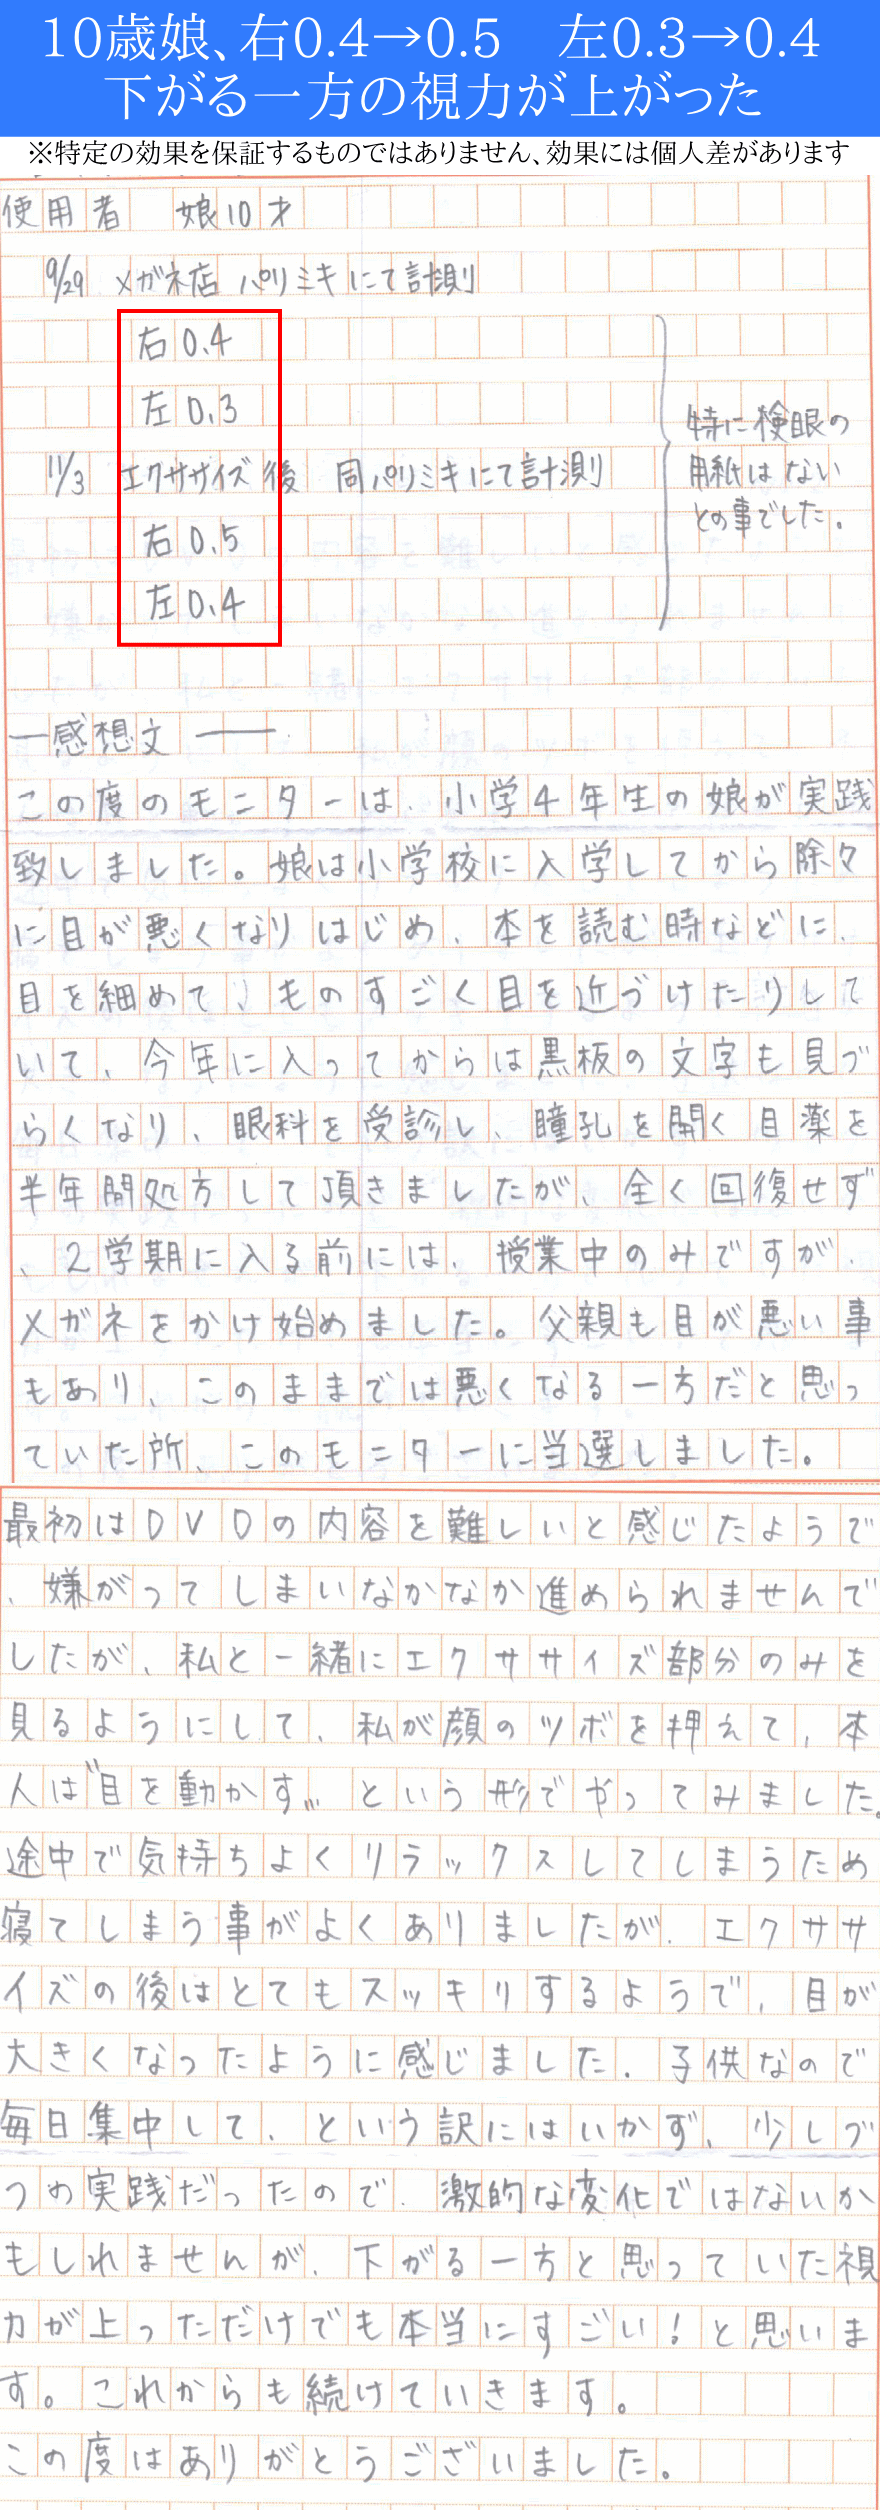 10歳娘、右0.4→0.5　左0.3→0.4
下がる一方の視力が上がった
※特定の効果を保証するものではありません、効果には個人差があります
使用者　娘10才
9/29　メガネ店 パリミキにて計測
右0.4
左0.3
11/3　エクササイズ後　同パリミキにて計測
右0.5
左0.4
特に検眼の
用紙はない
との事でした。
―感想文――
この度のモニターは、小学4年生の娘が実践
致しました。娘は小学校に入学してから除々
に目が悪くなりはじめ、本を読む時などに、
目を細めて、ものすごく目を近づけたりして
いて、今年に入ってからは黒板の文字も見づ
らくなり、眼科を受診し、瞳孔を開く目薬を
半年間処方して頂きましたが、全く回復せず
、2学期に入る前には、授業中のみですが、
メガネをかけ始めました。父親も目が悪い事
もあり、このままでは悪くなる一方だと思っ
ていた所、このモニターに当選しました。
最初はDVDの内容を難しいと感じたようで
、嫌がってしまいなかなか進められませんで
したが、私と一緒にエクササイズ部分のみを
見るようにして、私が顔のツボを押えて、本
人は"目を動かす"という形でやってみました。
途中で気持ちよくリラックスしてしまうため
寝てしまう事がよくありましたが、エクササ
イズの後はとてもスッキリするようで、目が
大きくなったように感じました。子供なので
毎日集中して、という訳にはいかず、少しづ
つの実践だったので、激的な変化ではないか
もしれませんが、下がる一方と思っていた視
力が上っただけでも本当にすごい！と思いま
す。これからも続けていきます。
この度はありがとうございました。